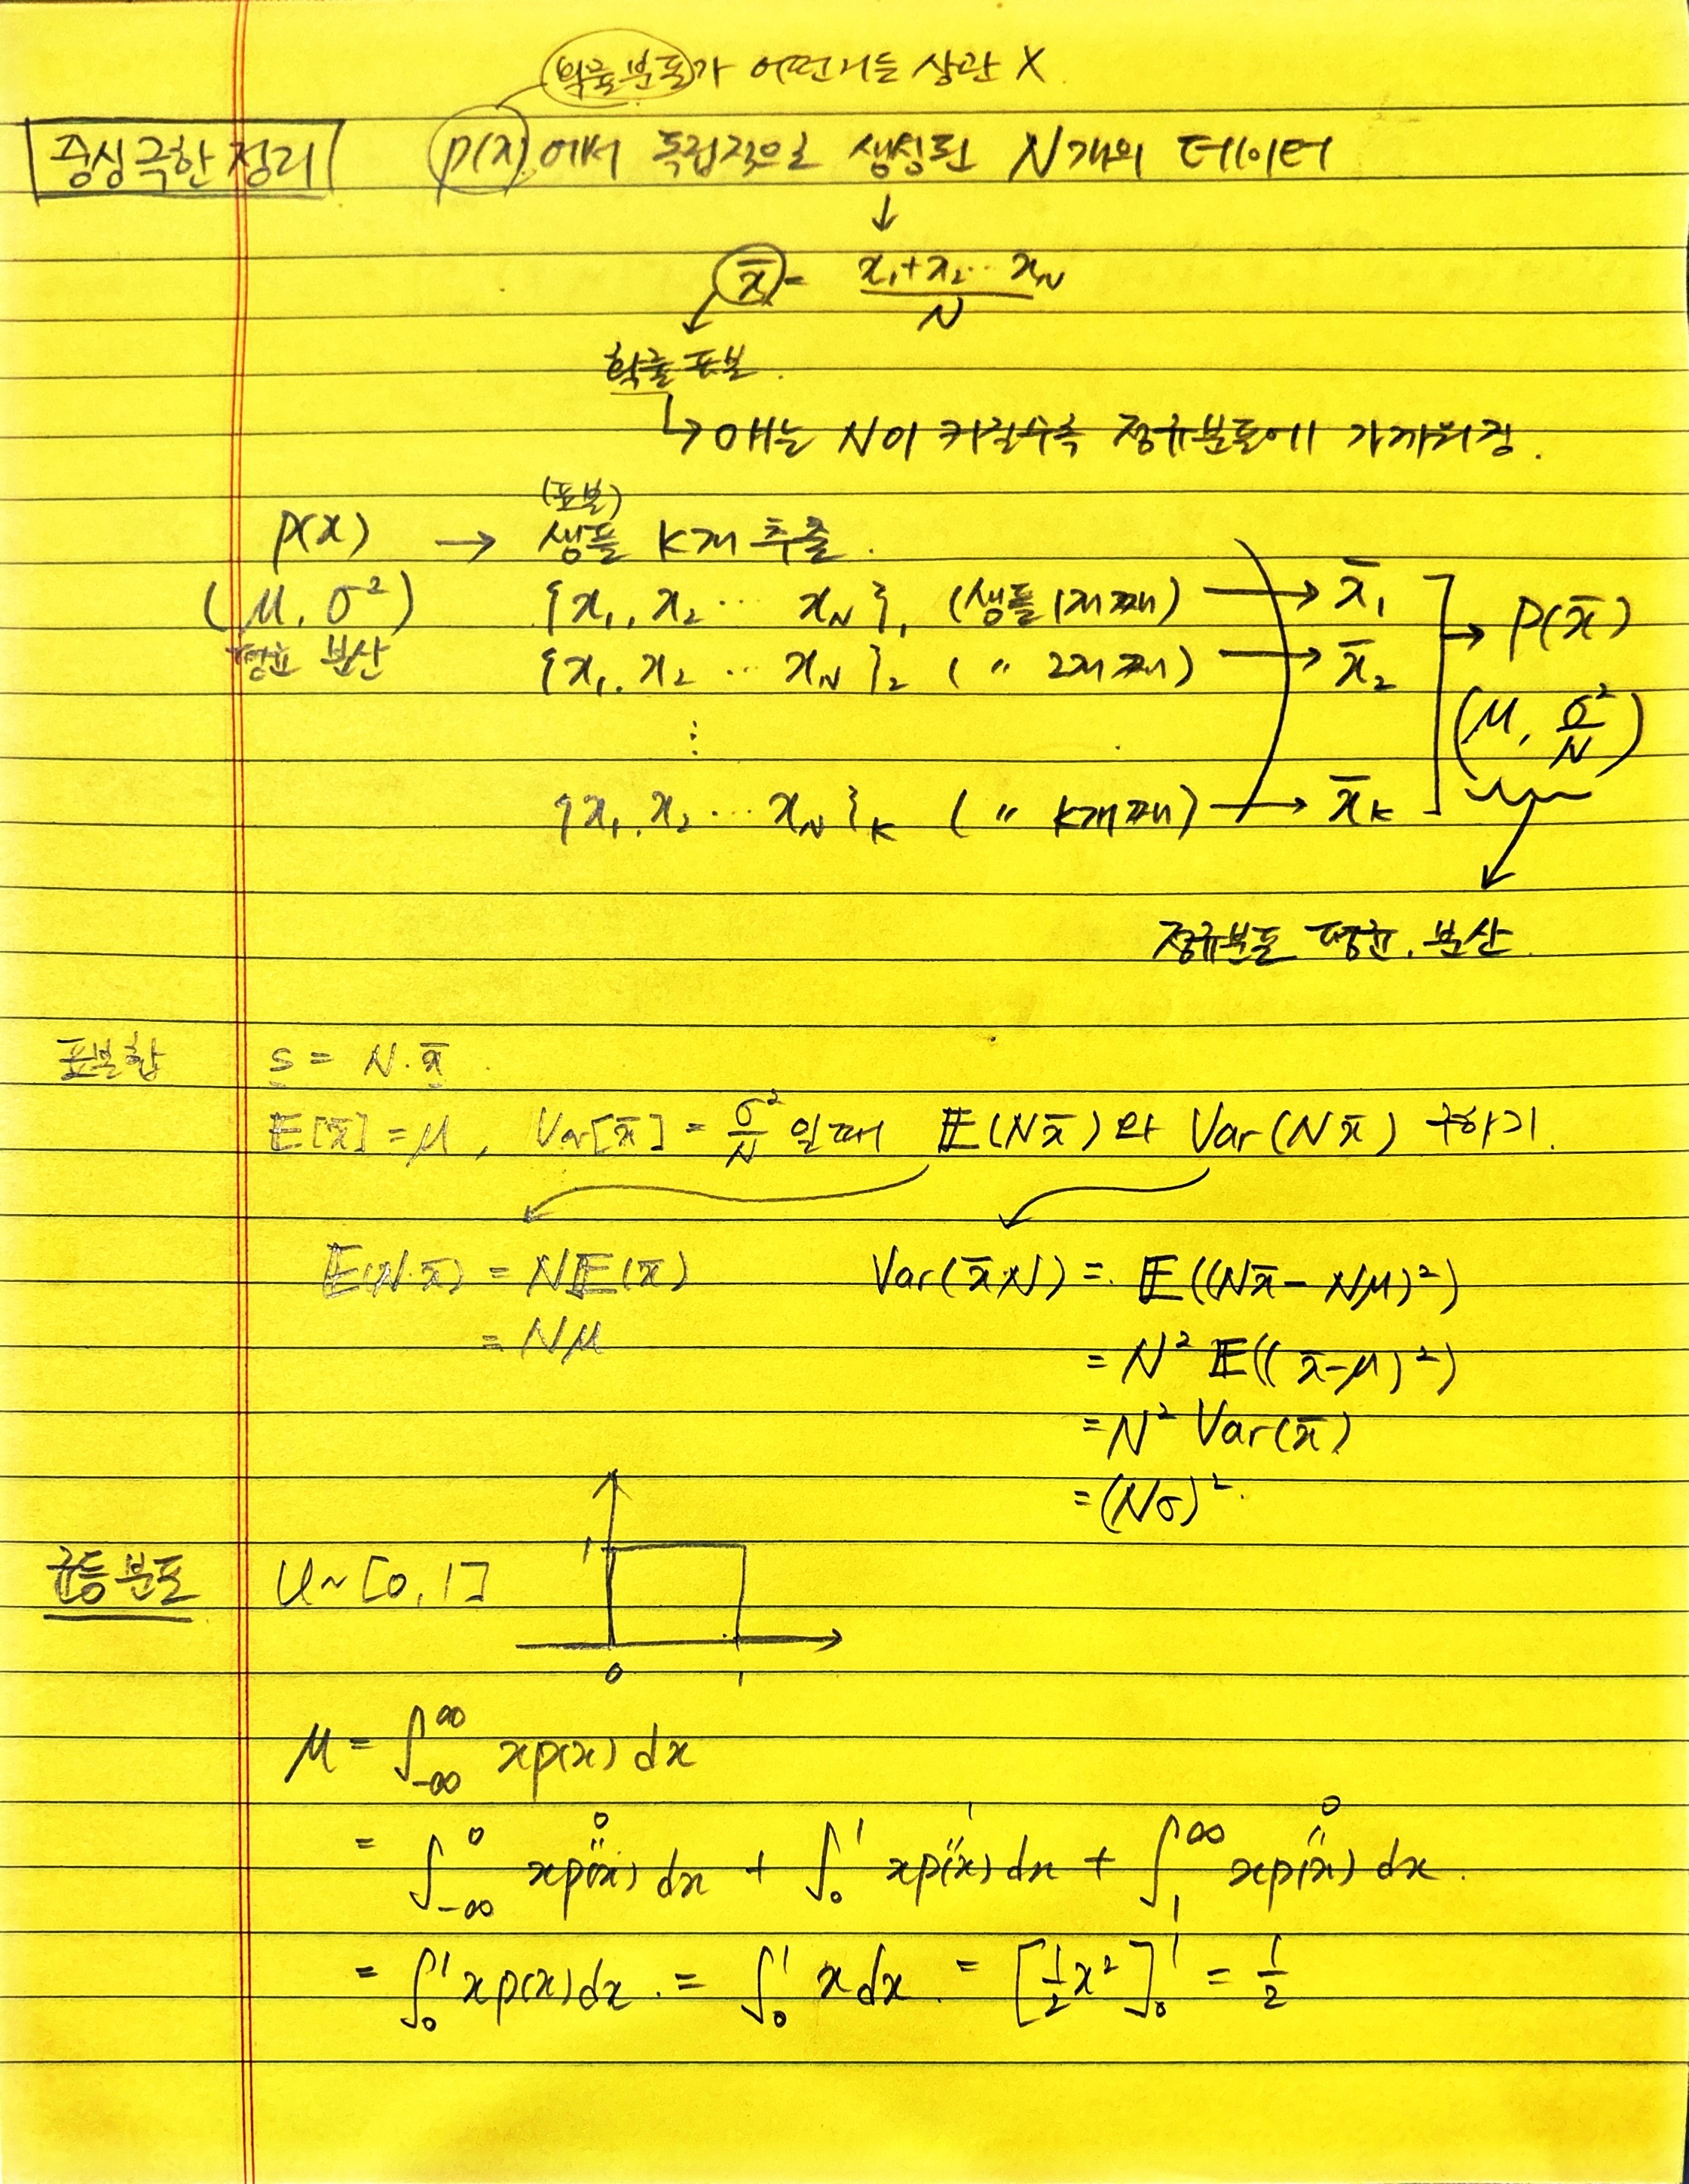 확률분포가 어떤거든 상관 X
중심극한정리 p(x)에서 독립적으로 생성된 N개의 데이터
↓
x̄ = (x₁+x₂⋯xₙ)/N
확률 표본.
↳ 얘는 N이 커질수록 정규분포에 가까워짐.
(표본)
p(x) → 샘플 K개 추출.
(μ, σ²) {x₁, x₂ ⋯ x_N}₁ (샘플 1개째) → x̄₁
평균 분산 {x₁, x₂ ⋯ x_N}₂ (〃 2개째) → x̄₂ → p(x̄)
⋮ (μ, σ²/N)
{x₁, x₂ ⋯ x_N}_K (〃 K개째) → x̄_K
정규분포 평균, 분산.
표본합 s = N·x̄
E[x̄] = μ, Var[x̄] = σ²/N 일때 E(Nx̄) 와 Var(Nx̄) 구하기.
E(N·x̄) = NE(x̄) Var(x̄N) = E((Nx̄ - Nμ)²)
= Nμ = N² E((x̄-μ)²)
= N² Var(x̄)
= (Nσ)²
균등분포 U~[0, 1] 1
0 1
μ = ∫_{-∞}^{∞} xp(x) dx
0 1 0
= ∫_{-∞}^{0} xp(x) dx + ∫_0^1 xp(x) dx + ∫_1^∞ xp(x) dx.
= ∫_0^1 xp(x)dx. = ∫_0^1 x dx. = [½x²]_0^1 = ½